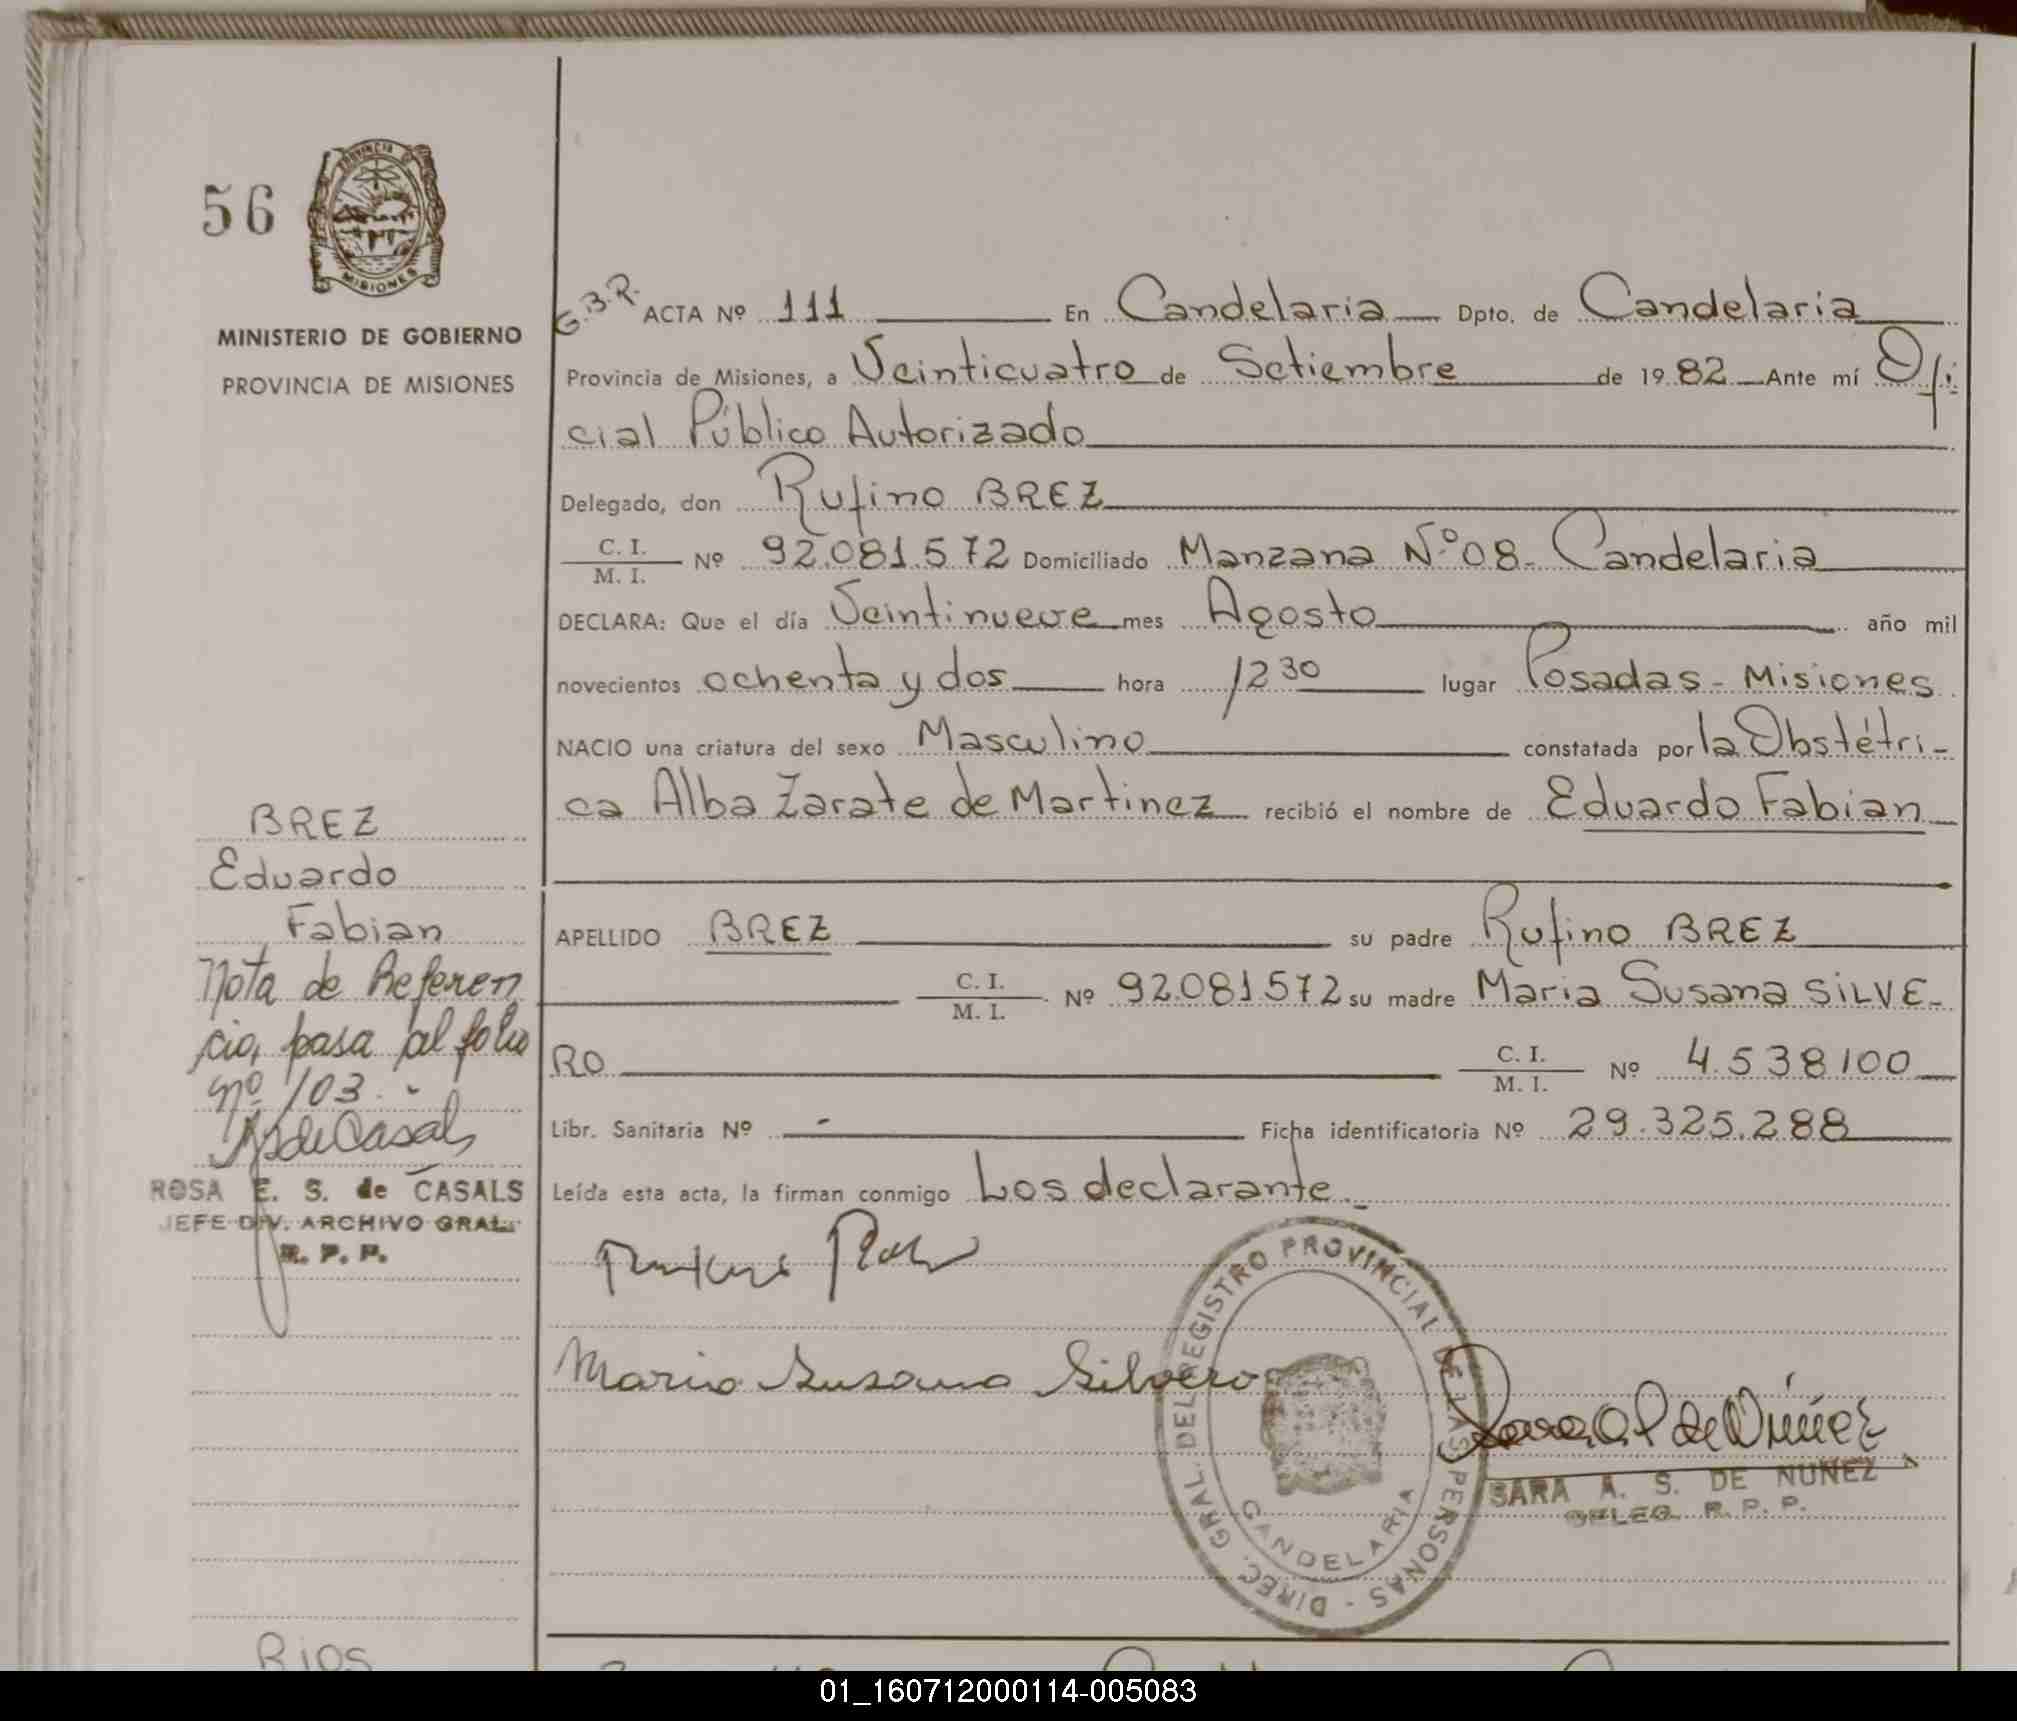 56
PROVINCIA DE
MISIONES
MINISTERIO DE GOBIERNO
PROVINCIA DE MISIONES
G.B.R. ACTA Nº 111 En Candelaria Dpto. de Candelaria
Provincia de Misiones, a Veinticuatro de Setiembre de 1982 Ante mí Ofi
cial Público Autorizado
Delegado, don Rufino BREZ
C. I.
M. I. Nº 92.081.572 Domiciliado Manzana Nº 08- Candelaria
DECLARA: Que el día Veintinueve mes Agosto año mil
novecientos ochenta y dos hora 12 30 lugar Posadas - Misiones
NACIO una criatura del sexo Masculino constatada por la Obstétri-
ca Alba Zarate de Martinez recibió el nombre de Eduardo Fabian
APELLIDO BREZ su padre Rufino BREZ
C. I.
M. I. Nº 92.081572 su madre Maria Susana SILVE-
RO C. I.
M. I. Nº 4.538100
Libr. Sanitaria Nº - Ficha identificatoria Nº 29.325.288
Leída esta acta, la firman conmigo Los declarante.
Maria Susana Silvero
DIREC. GRAL. DEL REGISTRO PROVINCIAL DE LAS PERSONAS -
CANDELARIA
SARA A. S. DE NUÑEZ
DELEG. R. P. P.
BREZ
Eduardo
Fabian
Nota de Referen
cia, pasa al folio
nº 103.-
ROSA E. S. de CASALS
JEFE DIV. ARCHIVO GRAL.
R. P. P.
Rios
01_160712000114-005083